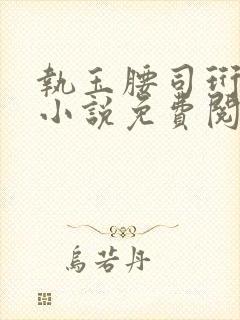 執玉腰司珩
小說免費閱
烏若丹